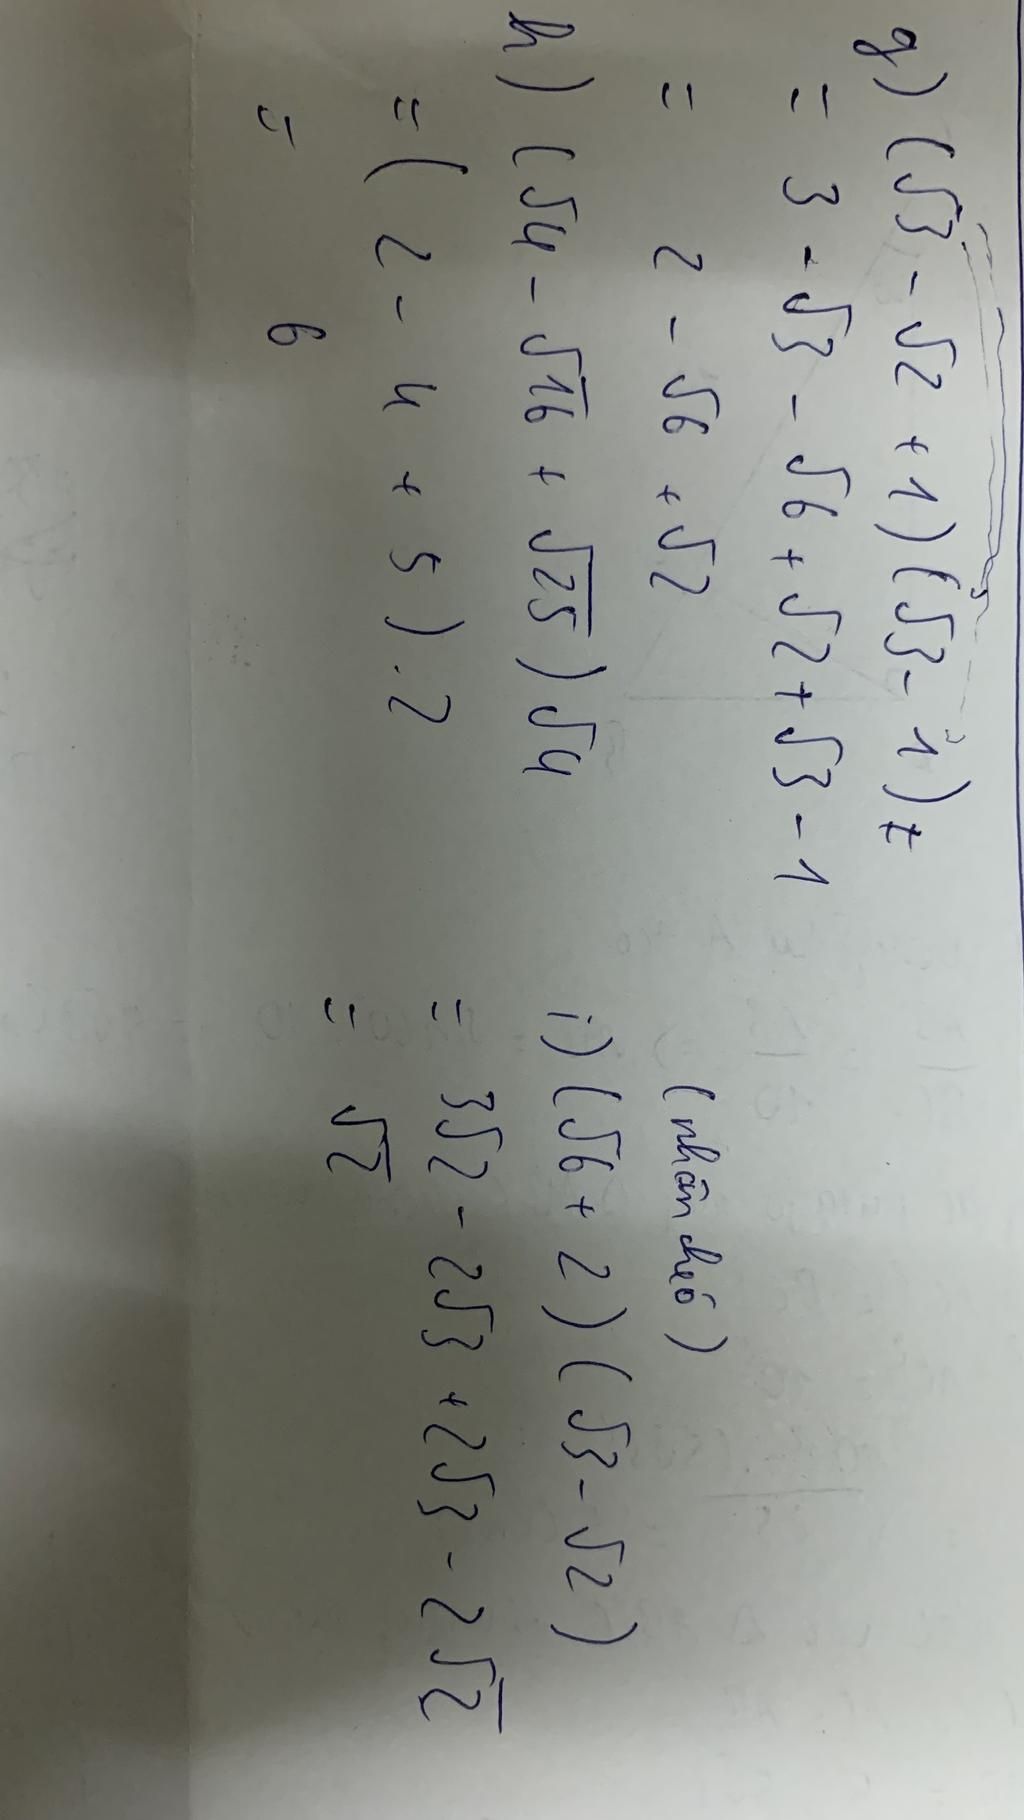 g) (√3 - √2 + 1)(√3 - 1)
= 3 - √3 - √6 + √2 + √3 - 1
= 2 - √6 + √2
h) (√4 - √16 + √25)√4
= (2 - 4 + 5).2
= 6
(nhân chéo)
i) (√6 + 2)(√3 - √2)
= 3√2 - 2√3 + 2√3 - 2√2
= √2